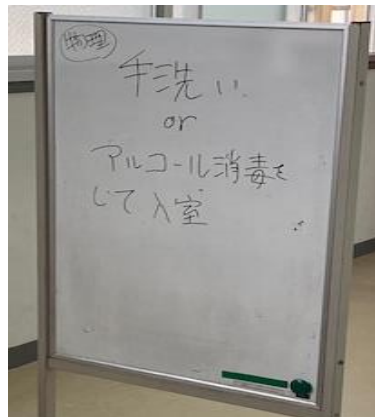 物理
手洗い
or
アルコール消毒を
して入室